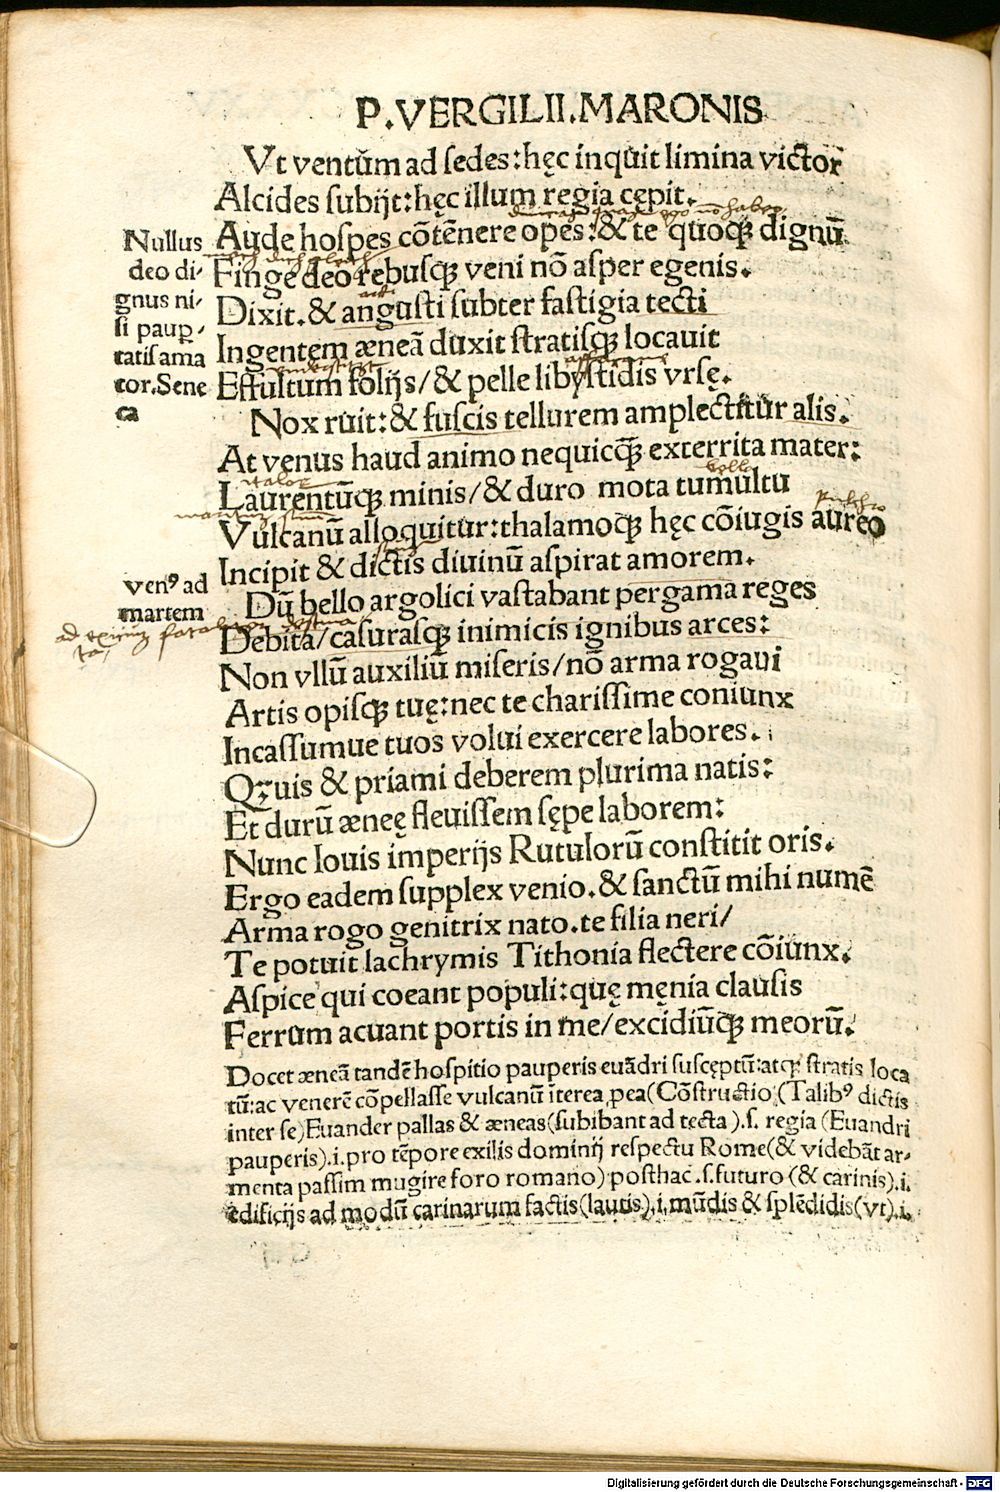 P.VERGILII.MARONIS
Vt ventũm ad sedes:hęc inquit limina victor
Alcides subijt:hęc illum regia cępit.
Aude hospes cõtẽnere opes:& te quoqꝫ dignũ
Finge deo rebusqꝫ veni nõ asper egenis.
Dixit.& angusti subter fastigia tecti
Ingentem æneã duxit stratisqꝫ locauit
Effultum folijs/& pelle libystidis vrsę.
Nox ruit:& fuscis tellurem amplectitur alis.
At venus haud animo nequicqꝫ exterrita mater:
Laurentũqꝫ minis/& duro mota tumultu
Vulcanũ alloquitur:thalamoqꝫ hęc cõiugis aureo
Incipit & dictis diuinũ aspirat amorem.
Dũ bello argolici vastabant pergama reges
Debita/casurasqꝫ inimicis ignibus arces:
Non vllũ auxiliũ miseris/nõ arma rogaui
Artis opisqꝫ tuę:nec te charissime coniunx
Incassumue tuos volui exercere labores.
Qꝫuis & priami deberem plurima natis:
Et durũ æneę fleuissem sępe laborem:
Nunc Iouis imperijs Rutulorũ constitit oris.
Ergo eadem supplex venio.& sanctũ mihi numẽ
Arma rogo genitrix nato.te filia neri/
Te potuit lachrymis Tithonia flectere cõiunx.
Aspice qui coeant populi:quę męnia clausis
Ferrum acuant portis in me/excidiũqꝫ meorũ.
Nullus
deo di-
gnus ni-
si paup-
tatis ama
tor.Sene
ca
Venꝰ ad
martem
Docet æneã tandẽ hospitio pauperis euãdri suscęptũ:atqꝫ stratis loca
tũ:ac venerẽ cõpellasse vulcanũ ĩterea pea(Cõstructio(Talibꝰ dictis
inter se)Euander pallas & æneas(subibant ad tecta).s. regia (Euandri
pauperis).i.pro tẽpore exilis dominij respectu Rome(& videbãt ar-
menta passim mugire foro romano) posthac .s.futuro (& carinis).i.
edificijs ad modũ carinarum factis(lautis).i.mũdis & splẽdidis(vt).i.
Digitalisierung gefördert durch die Deutsche Forschungsgemeinschaft - DFG